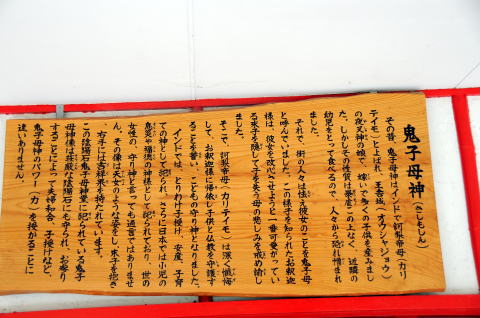 鬼子母神(きしもじん)
その昔、鬼子母神はインドで訶梨帝母(カリ
テイモ)とよばれ、王舎城(オウシャジョウ)
の夜叉神の娘で、嫁いで多くの子供を産みまし
た。しかしその性質は暴虐この上なく、近隣の
幼児をとって食べるので、人々から恐れ憎まれ
ました。
それで、街の人々は怯え彼女のことを鬼子母
と呼んでいました。この様子を知られたお釈迦
様は、彼女を改心させようと一番可愛がってい
る末子を隠して子を失う母の悲しみを戒め諭し
ました。
そこで、訶梨帝母(カリーテイモ)は深く懺悔
して、お釈迦様に帰依し子供と仏教を守護す
ることを誓い、こどもの守り神となりました。
インドでは、とりわけ子授け、安産、子育
ての神として祀られ、さらに日本では小児の
息災や福徳の神様として祀られており、世の
女性の、守り神と言っても過言ではありませ
ん。その像は天女のような姿をし、末子を抱き
右手には吉祥果を持たれています。
この陰陽石鬼子母神堂に祀られている鬼子
母神像は荘厳な陰陽石にも守られ、お参り
することによって夫婦和合、子授けなど、
鬼子母神のパワー(力)を授かることに
違いありません。